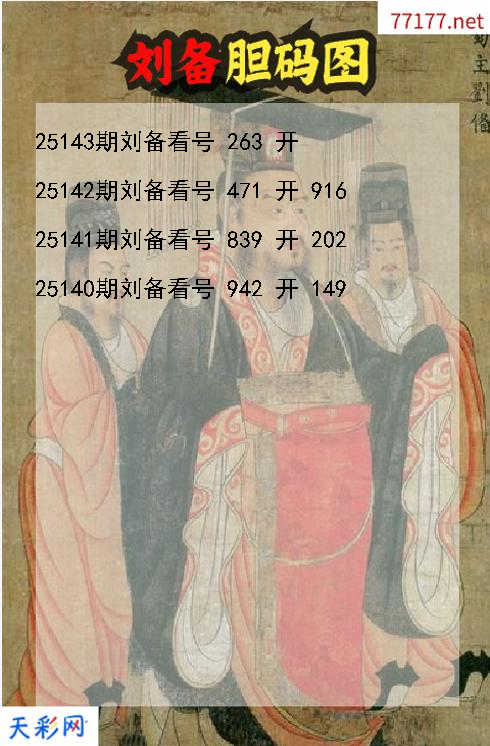 77177.net
蜀主劉備
刘备胆码图
25143期刘备看号 263 开
25142期刘备看号 471 开 916
25141期刘备看号 839 开 202
25140期刘备看号 942 开 149
天彩网